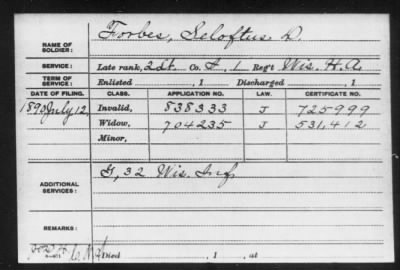 NAME OF SOLDIER: Forbes, Seloftus D.
SERVICE: Late rank, 2 Lt. Co. F, 1 Reg't Wis. H.A.
TERM OF SERVICE: Enlisted , 1 Discharged , 1
DATE OF FILING. CLASS. APPLICATION NO. LAW. CERTIFICATE NO.
1890 July 12, Invalid, 838333 J 725999
Widow, 704235 J 531,412
Minor,
ADDITIONAL SERVICES: G, 32 Wis. Inf.
REMARKS:
Died , 1 , at